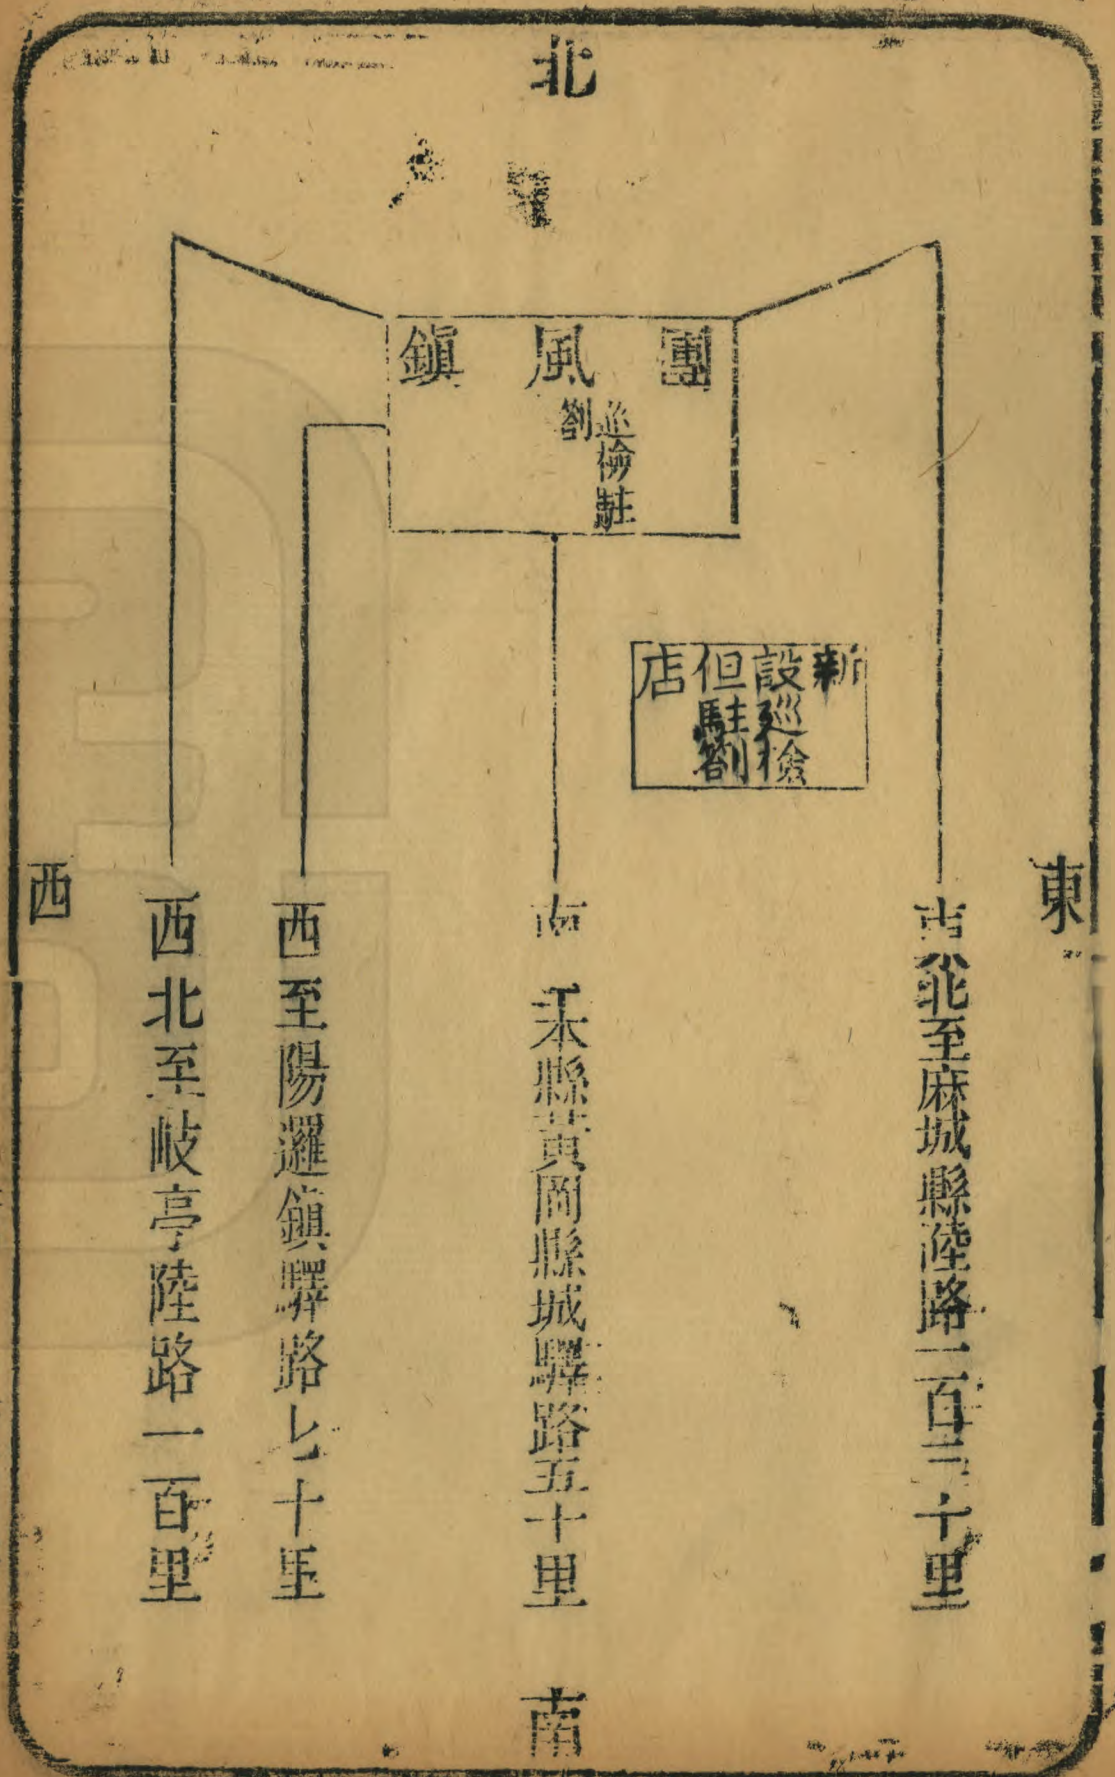 北
團風鎮
巡檢駐
劄
新
設巡檢
但駐劄
店
東
東北至麻城縣陸路一百二十里
南至本縣黃岡縣城驛路五十里
西至陽邏鎮驛路七十里
西北至岐亭陸路一百里
西
南